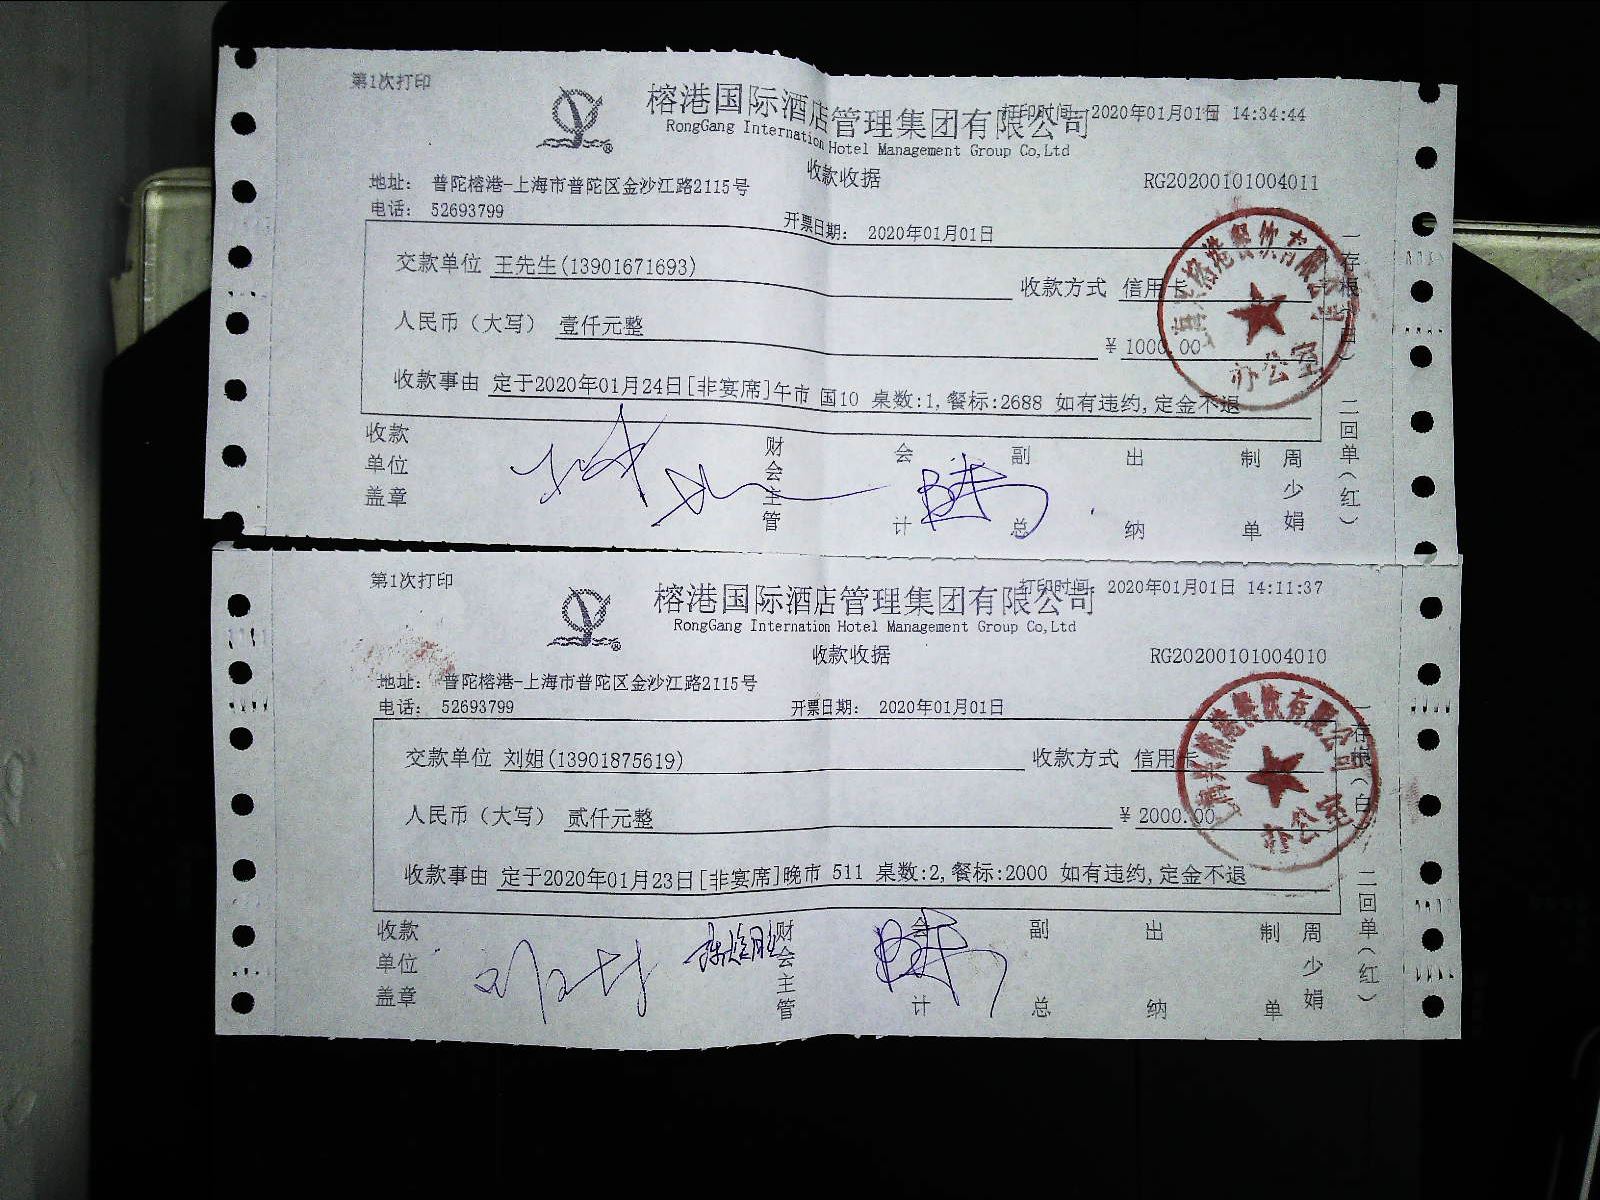 第1次打印
榕港国际酒店管理集团有限公司
打印时间: 2020年01月01日 14:34:44
RongGang Internation Hotel Management Group Co,Ltd
收款收据
RG20200101004011
地址: 普陀榕港-上海市普陀区金沙江路2115号
电话: 52693799
开票日期: 2020年01月01日
交款单位 王先生(13901671693)
收款方式 信用卡
人民币（大写） 壹仟元整
¥ 1000.00
收款事由 定于2020年01月24日[非宴席]午市 国10 桌数:1,餐标:2688 如有违约,定金不退
收款单位盖章
财会主管
会计
副总
出纳
制单
周少娟
一存根（白）
二回单（红）
榕港餐饮有限公司
办公室
第1次打印
榕港国际酒店管理集团有限公司
打印时间: 2020年01月01日 14:11:37
RongGang Internation Hotel Management Group Co,Ltd
收款收据
RG20200101004010
地址: 普陀榕港-上海市普陀区金沙江路2115号
电话: 52693799
开票日期: 2020年01月01日
交款单位 刘姐(13901875619)
收款方式 信用卡
人民币（大写） 贰仟元整
¥ 2000.00
收款事由 定于2020年01月23日[非宴席]晚市 511 桌数:2,餐标:2000 如有违约,定金不退
收款单位盖章
财会主管
会计
副总
出纳
制单
周少娟
一存根（白）
二回单（红）
榕港餐饮有限公司
办公室